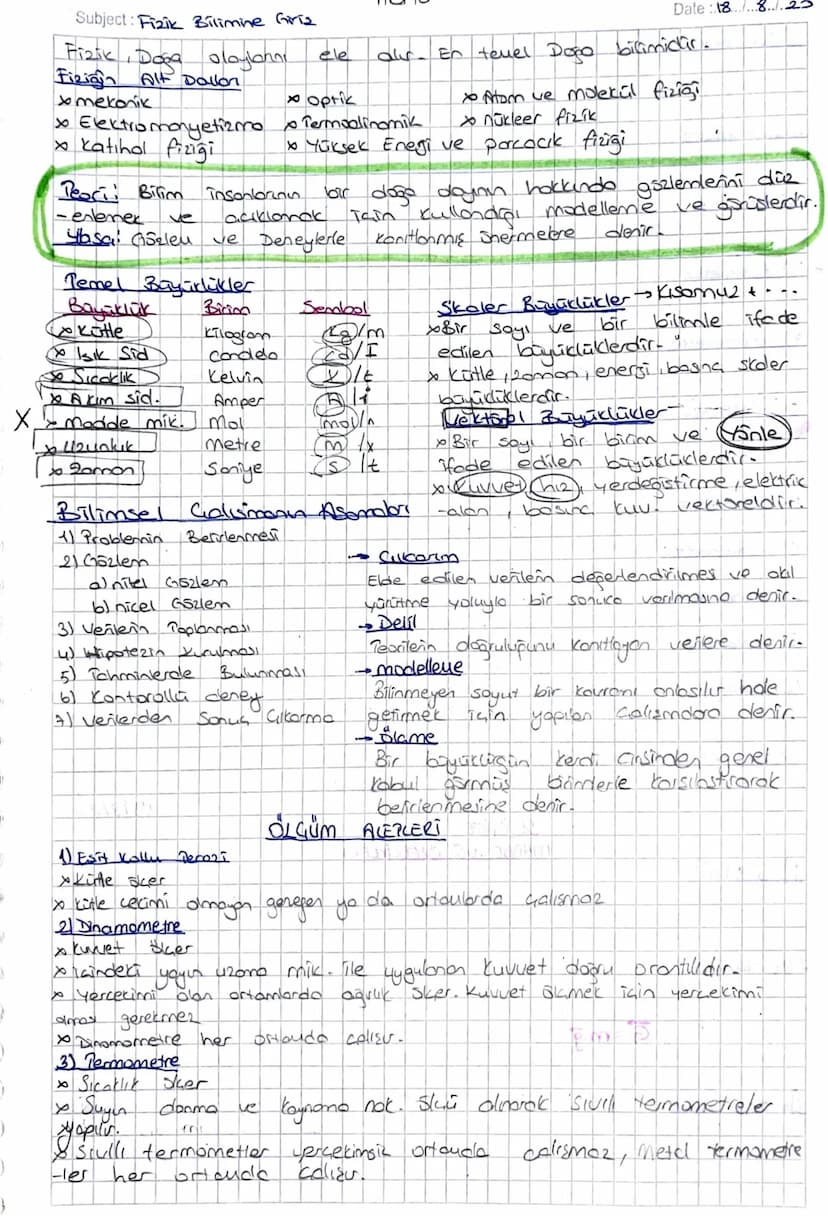 Subject: Fizik Bilimine Giriş
Date: 18/8/.23
Fizik, Doğa olaylarını ele alır. En temel Doğa bilimidir.
Fiziğin Alt Dalları
x mekanik x optik x Atom ve molekül fiziği
x Elektromanyetizma x Termodinamik x nükleer fizik
x Katıhal fiziği x Yüksek Enerji ve parçacık fiziği
Teori: Bilim insanlarının bir doğa olayının hakkında gözlemlerini düz
-enlemek ve açıklamak için kullandığı modelleme ve görüşlerdir.
Yasa: Gözlem ve Deneylerle kanıtlanmış önermelere denir.
Temel Büyüklükler
Büyüklük Birim Sembol
x Kütle Kilogram Kg/m
x Işık Şid candela cd/I
x Sıcaklık Kelvin K/t
x Akım şid. Amper A/i
X x Madde mik. Mol mol/n
x Uzunluk Metre m/x
x Zaman Saniye s/t
Skaler Büyüklükler → Kısamuz + ...
x Bir sayı ve bir birimle ifade
edilen büyüklüklerdir.
x Kütle, zaman, enerji, basınç skaler
büyüklüklerdir.
Vektörel Büyüklükler
x Bir sayı, bir birim ve Yönle
ifade edilen büyüklüklerdir.
x Kuvvet, hız, yerdeğiştirme, elektrik
-alan, basınç kuv. vektöreldir.
Bilimsel Çalışmanın Aşamaları
1) Problemin Belirlenmesi
2) Gözlem
a) nitel Gözlem
b) nicel Gözlem
3) Verilerin Toplanması
4) Hipotezin kurulması
5) Tahminlerde Bulunması
6) Kontorollü deney
7) Verilerden Sonuç Çıkarma
→ Çıkarım
Elde edilen verilerin değerlendirilmesi ve akıl
yürütme yoluyla bir sonuca varılmasına denir.
→ Delil
Teorilerin doğruluğunu kanıtlayan verilere denir.
→ modelleme
Bilinmeyen soyut bir kavramı anlaşılır hale
getirmek için yapılan çalışmalara denir.
→ Ölçme
Bir büyüklüğün kendi cinsinden genel
kabul görmüş birimlerle karşılaştırarak
belirlenmesine denir.
ÖLÇÜM ALETLERİ
1) Eşit Kollu Terazi
x Kütle ölçer
x Kütle çekimi olmayan gezegen ya da ortamlarda çalışmaz
2) Dinamometre
x Kuvvet ölçer
x İçindeki yayın uzama mik. ile uygulanan kuvvet doğru orantılıdır.
x Yerçekimi olan ortamlarda ağırlık ölçer. Kuvvet ölçmek için yerçekimi
olması gerekmez
x Dinamometre her ortamda çalışır.
3) Termometre
x Sıcaklık ölçer
x Suyun donma ve kaynama nok. ölçü alınarak sıvılı termometreler
yapılır.
x Sıvılı termometler yerçekimsiz ortamda çalışmaz, metal termometre
-ler her ortamda çalışır.